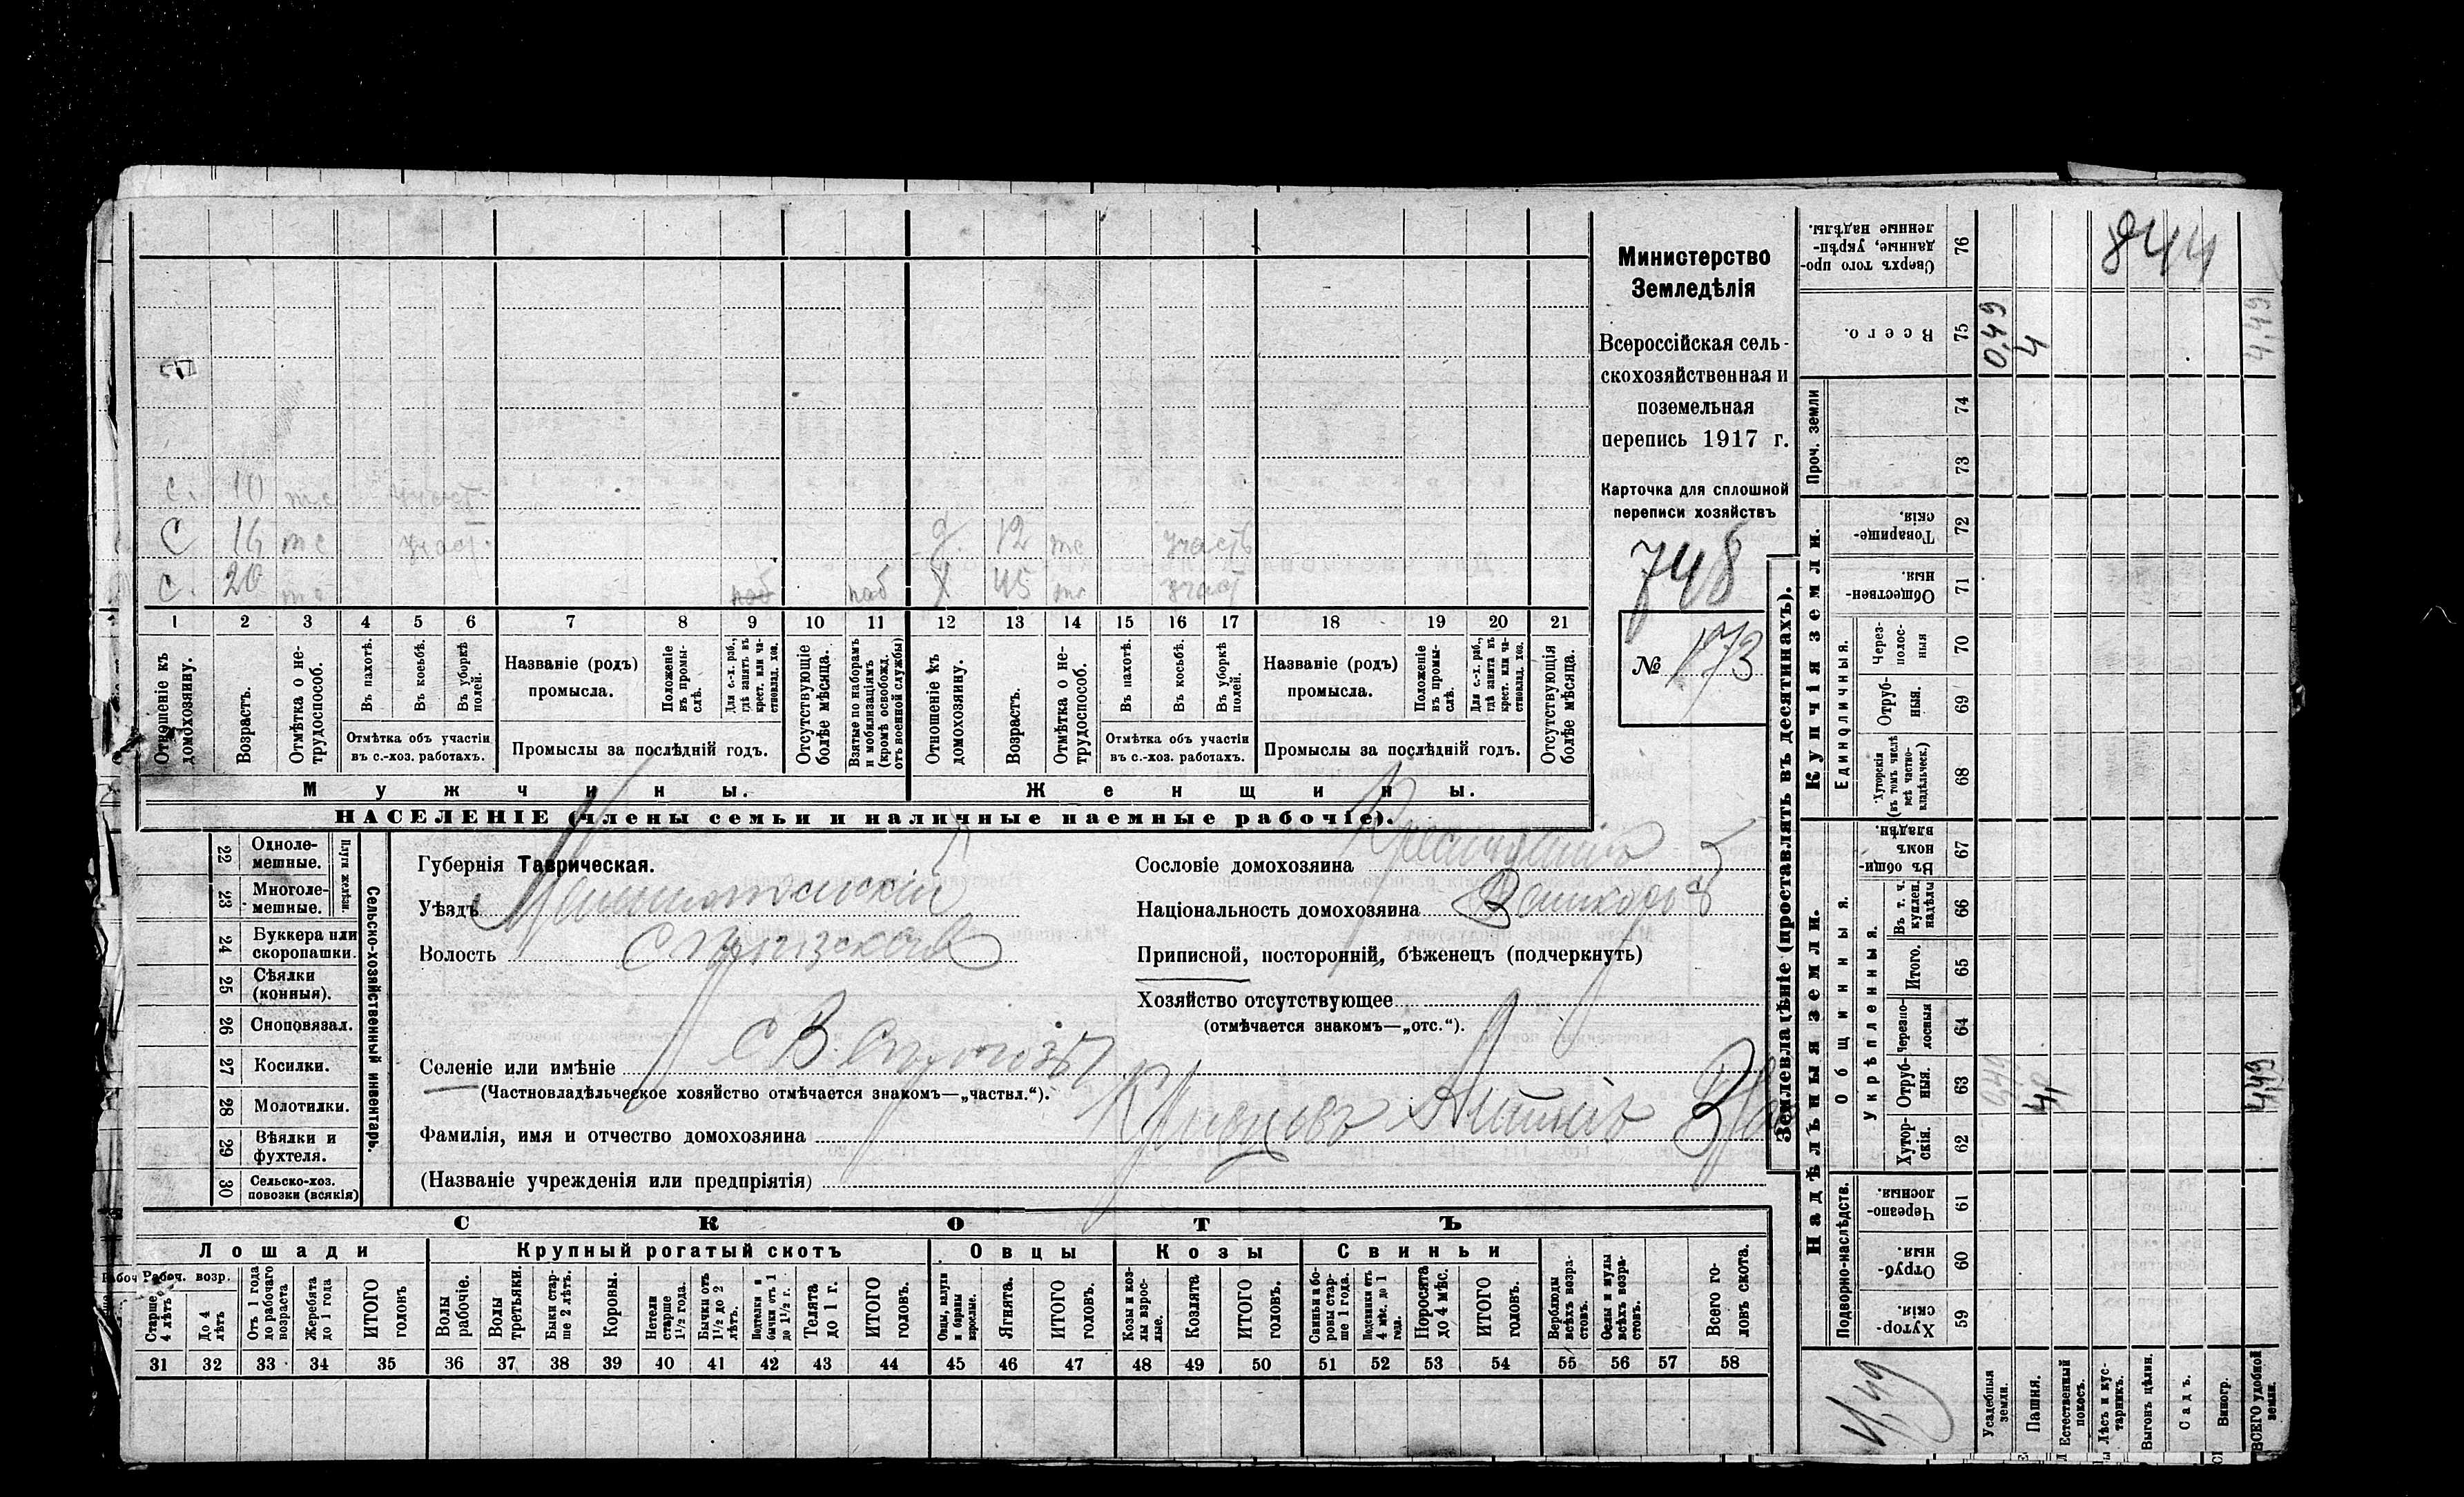 с. 10 т.с участ
С 16 т с участ. д. 12 тс участ
с. 20 т с наб наб Х 45 тс участ
1 2 3 4 5 6 7 8 9 10 11 12 13 14 15 16 17 18 19 20 21
Отношеніе къ домохозяину.
Возрастъ.
Отмѣтка о не-
трудоспособ.
Въ пахотѣ.
Въ косьбѣ.
Въ уборкѣ полей.
Отмѣтка объ участіи
въ с.-хоз. работахъ.
Названіе (родъ)
промысла.
Положеніе въ промы-
слѣ.
Для с.-х. раб.,
гдѣ занятъ въ
крест. или ча-
стновлад. хоз.
Промыслы за послѣдній годъ.
Отсутствующіе
болѣе мѣсяца.
Взятые по наборамъ
и мобилизаціямъ
(кромѣ освобожд.
отъ военной службы)
Отношеніе къ
домохозяину.
Возрастъ.
Отмѣтка о не-
трудоспособ.
Въ пахотѣ.
Въ косьбѣ.
Въ уборкѣ
полей.
Отмѣтка объ участіи
въ с.-хоз. работахъ.
Названіе (родъ)
промысла.
Положеніе
въ промы-
слѣ.
Для с.-х. раб.,
гдѣ занята въ
крест. или ча-
стновлад. хоз.
Промыслы за послѣдній годъ.
Отсутствующія
болѣе мѣсяца.
Мужчины. Женщины.
НАСЕЛЕНІЕ (члены семьи и наличные наемные рабочіе).
Министерство
Земледѣлія
Всероссійская сель-
скохозяйственная и
поземельная
перепись 1917 г.
Карточка для сплошной
переписи хозяйствъ
748
№ 173
22 Одноле-
мешные.
23 Многоле-
мешные.
Плуги желѣзн.
24 Буккера или
скоропашки.
25 Сѣялки
(конныя).
26 Сноповязал.
27 Косилки.
28 Молотилки.
29 Вѣялки и
фухтеля.
30 Сельско-хоз.
повозки (всякія)
Сельско-хозяйственный инвентарь.
Губернія Таврическая.
Уѣздъ
Волость
Селеніе или имѣніе
(Частновладѣльческое хозяйство отмѣчается знакомъ—„частвл.“).
Фамилія, имя и отчество домохозяина
(Названіе учрежденія или предпріятія)
Сословіе домохозяина
Національность домохозяина
Приписной, посторонній, бѣженецъ (подчеркнуть)
Хозяйство отсутствующее
(отмѣчается знакомъ—„отс.“).
СКОТЪ
Лошади Крупный рогатый скотъ Овцы Козы Свиньи
Рабоч. возр.
Старше
4 лѣтъ
До 4
лѣтъ
Отъ 1 года
до рабочаго
возраста
Жеребята
до 1 года
ИТОГО
головъ
Волы
рабочіе.
Волы
третьяки.
Быки стар-
ше 2 лѣтъ.
Коровы.
Нетели
старше
1½ года.
Бычки отъ
1½ до 2
лѣтъ.
Подтелки и
бычки отъ 1
до 1½ г.
Телята
до 1 г.
ИТОГО
головъ.
Овцы, валухи
и бараны
взрослые.
Ягнята.
ИТОГО
головъ.
Козы и коз-
лы взрос-
лые.
Козлята
ИТОГО
головъ.
Свиньи и бо-
ровы стар-
ше 1 года.
Подсвинки отъ
4 мѣс. до 1
года.
Поросята
до 4 мѣс.
ИТОГО
головъ.
Верблюды
всѣхъ возра-
стовъ.
Ослы и мулы
всѣхъ возра-
стовъ.
Всего го-
ловъ скота.
31 32 33 34 35 36 37 38 39 40 41 42 43 44 45 46 47 48 49 50 51 52 53 54 55 56 57 58
Землевладѣніе (проставлять въ десятинахъ).
Надѣльныя земли. Купчія земли. Проч. земли
Подворно-наслѣдств.
Общинныя.
Укрѣпленныя.
Единоличныя.
Хутор-
скія. 59
Отруб-
ныя. 60
Черезпо-
лосныя. 61
Хутор-
скія. 62
Отруб-
ныя. 63
Черезпо-
лосныя 64
Итого. 65
Въ т. ч.
куплен.
надѣлы 66
Въ общин-
номъ
владѣн. 67
Хуторскія
(въ томъ числѣ
всѣ частно-
владѣльческ.) 68
Отруб-
ныя. 69
Через-
полос-
ныя 70
Обществен-
ныя. 71
Товарище-
скія. 72
73
74
Всего. 75
Сверхъ того про-
данные, укрѣп-
ленные надѣлы. 76
844
0,49
4
4,49
4
4,49
4,49
Усадебныя
земли.
Пашня.
Естественный
покосъ.
Лѣсъ и кус-
тарникъ.
Выгонъ цѣлин.
Садъ.
Виногр.
ВСЕГО удобной
земли.